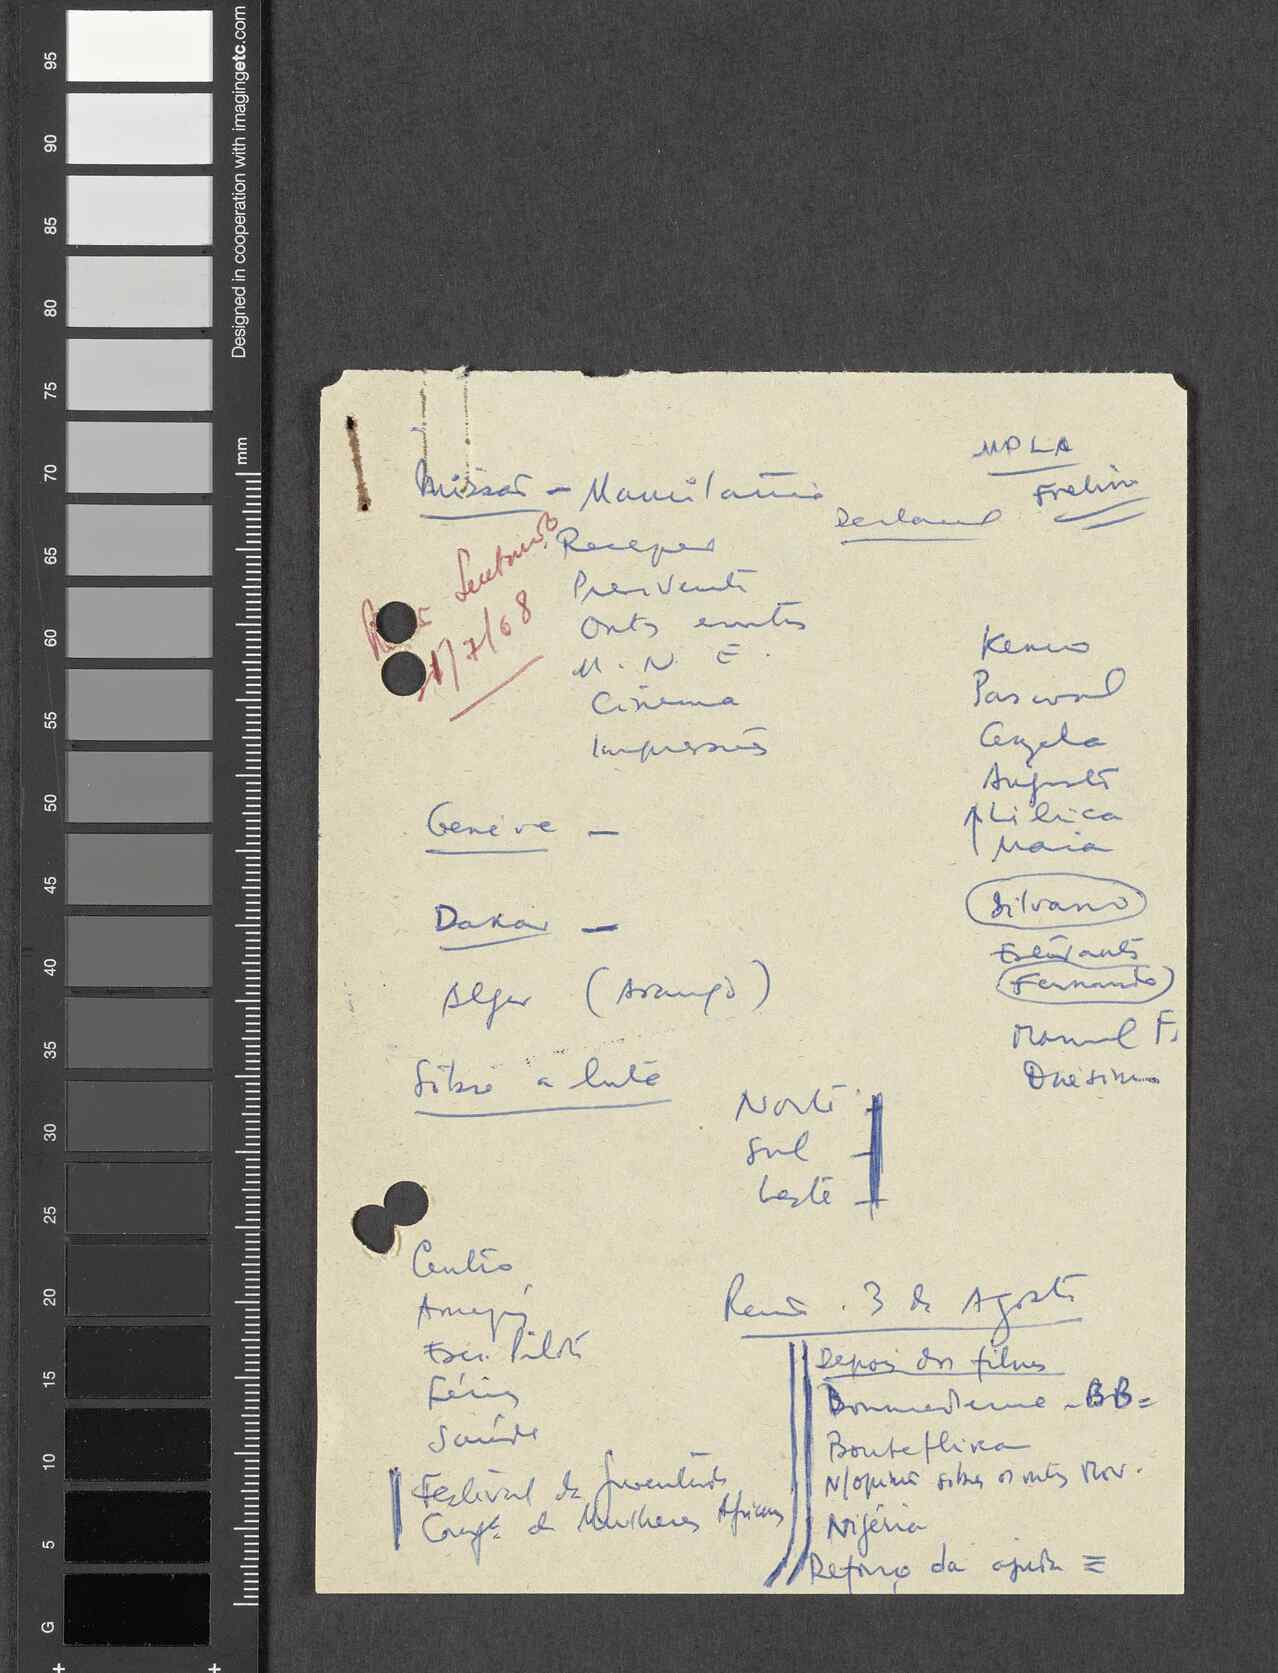 Designed in cooperation with imagingetc.com
mm
95
90
85
80
75
70
65
60
55
50
45
40
35
30
25
20
15
10
5
G
MPLA
Frelimo
Missão - Mauritânia
Recepção
Presidente
Outros
M. N. E.
Cinema
Impressões
7/68
Genève -
Dakar -
Alger (Araujo)
Sobre a luta
Norte
Sul
Leste
Pascoal
Angela
Augusto
Lilica
Maria
Silvano
Estudante
Fernando
Manuel F.
Onésimo
Centro
Esc. Piloto
Férias
Saúde
Festival da Juventude
Cong. de Mulheres Africanas
3 de Agosto
Depois dos filmes
Boumedienne - BB =
Bouteflika
N/opinião sobre os outros Mov.
Nigéria
Reforço da ajuda =